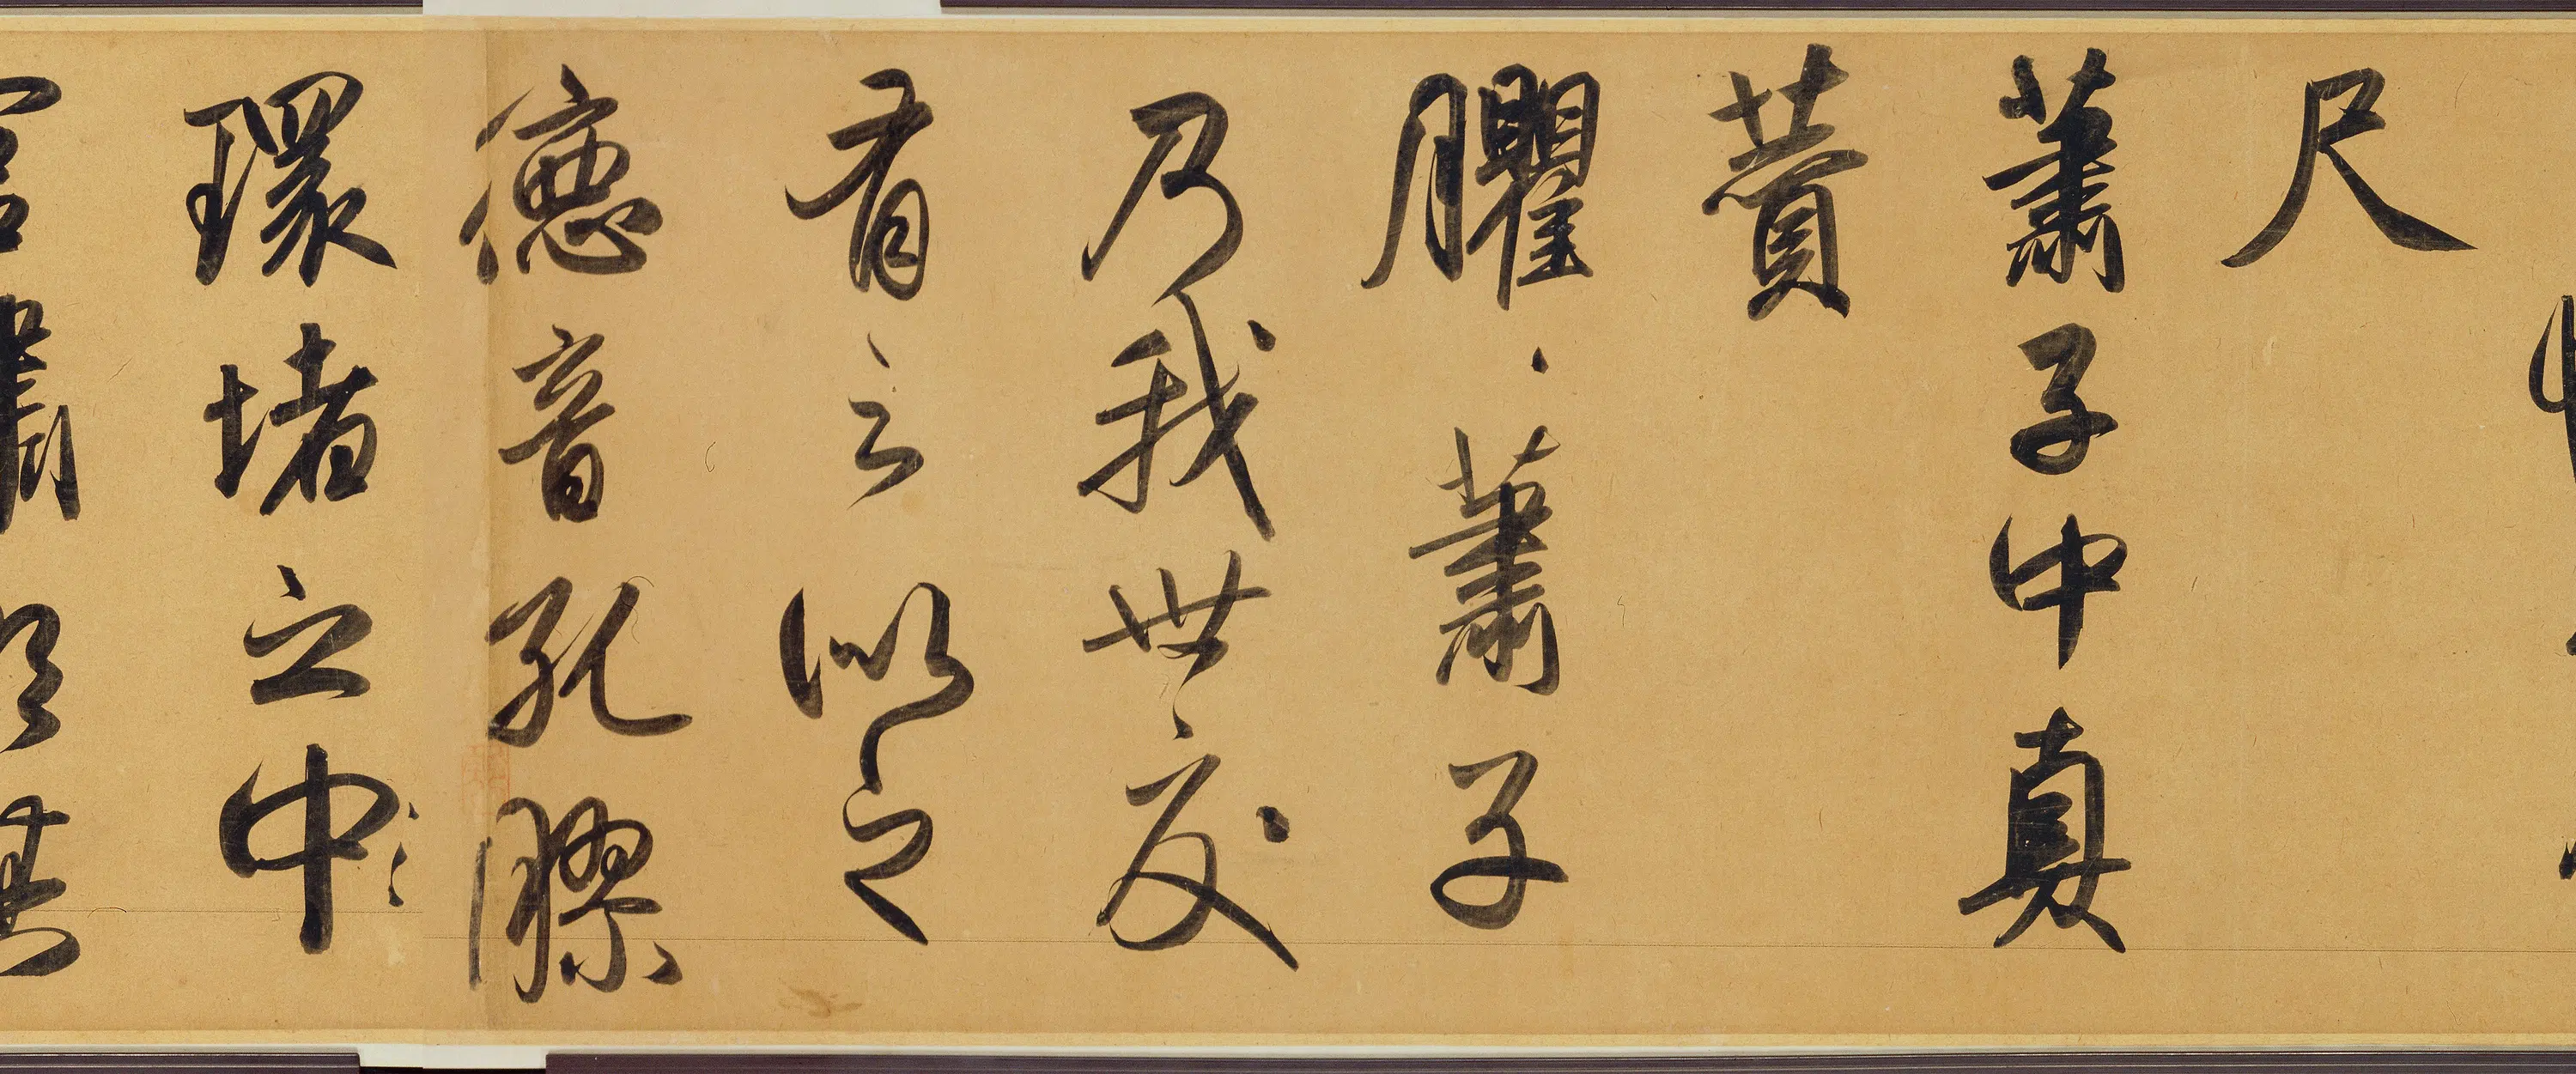 尺
蕭子中真
賛
臞、蕭子
乃我世友
有言以之
德音孔膠
環堵之中